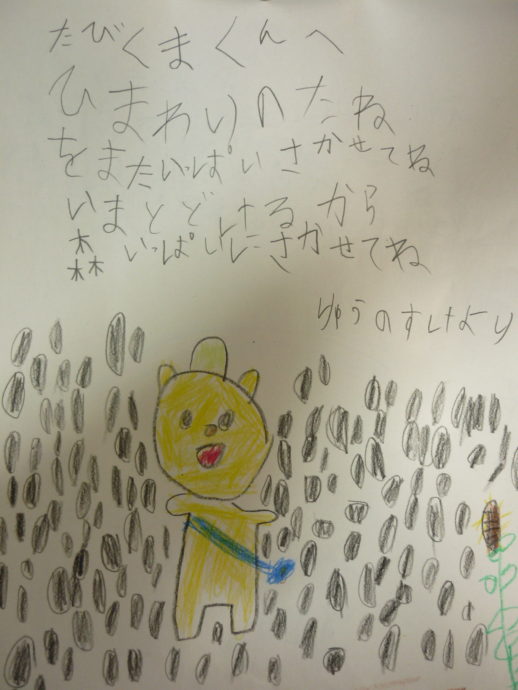 たびくまくんへ
ひまわりのたね
をまたいっぱいさかせてね
いまとどけるから
森いっぱいにさかせてね
ゆうのすけより